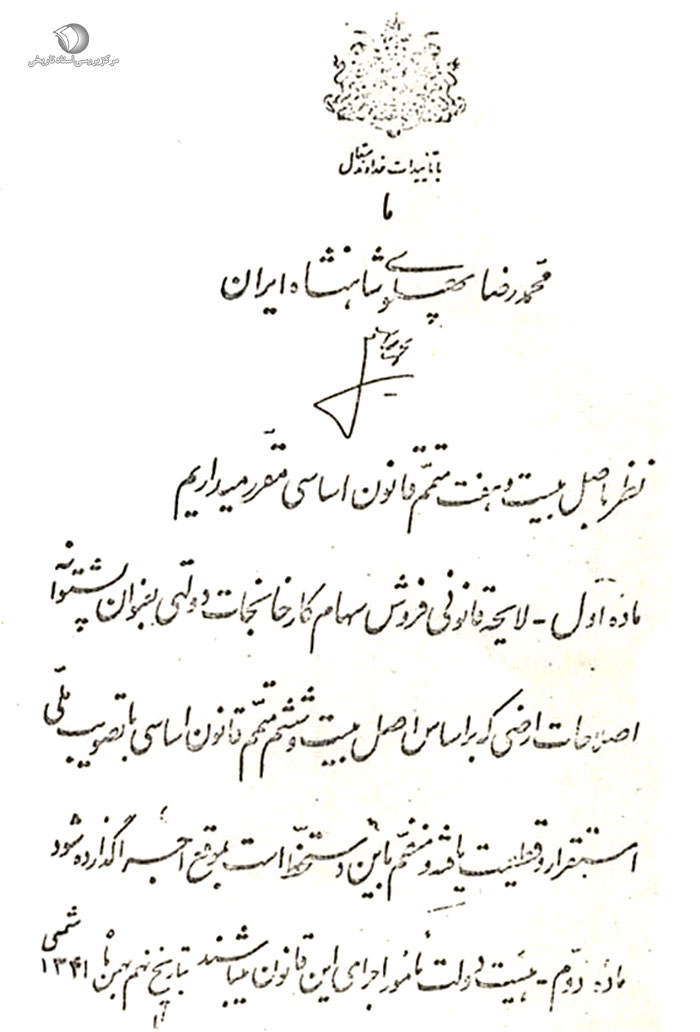 مرکز بررسی اسناد تاریخی
با تأییدات خداوند متعال
ما
محمدرضا پهلوی شاهنشاه ایران
نظر باصل بیست و هفت متمّم قانون اساسی مقرّر میداریم
مادّه اوّل - لایحه قانونی فروش سهام کارخانجات دولتی بعنوان پشتوانه
اصلاحات ارضی که بر اساس اصل بیست و ششم متمّم قانون اساسی با تصویب ملّی
استقرار و قطعیت یافته و منضمّ باین دستخطّ است بموقع اجرا گذارده شود
مادّه دوّم - هیئت دولت مأمور اجرای این قانون میباشند بتاریخ نهم بهمن ماه ۱۳۴۱ شمسی